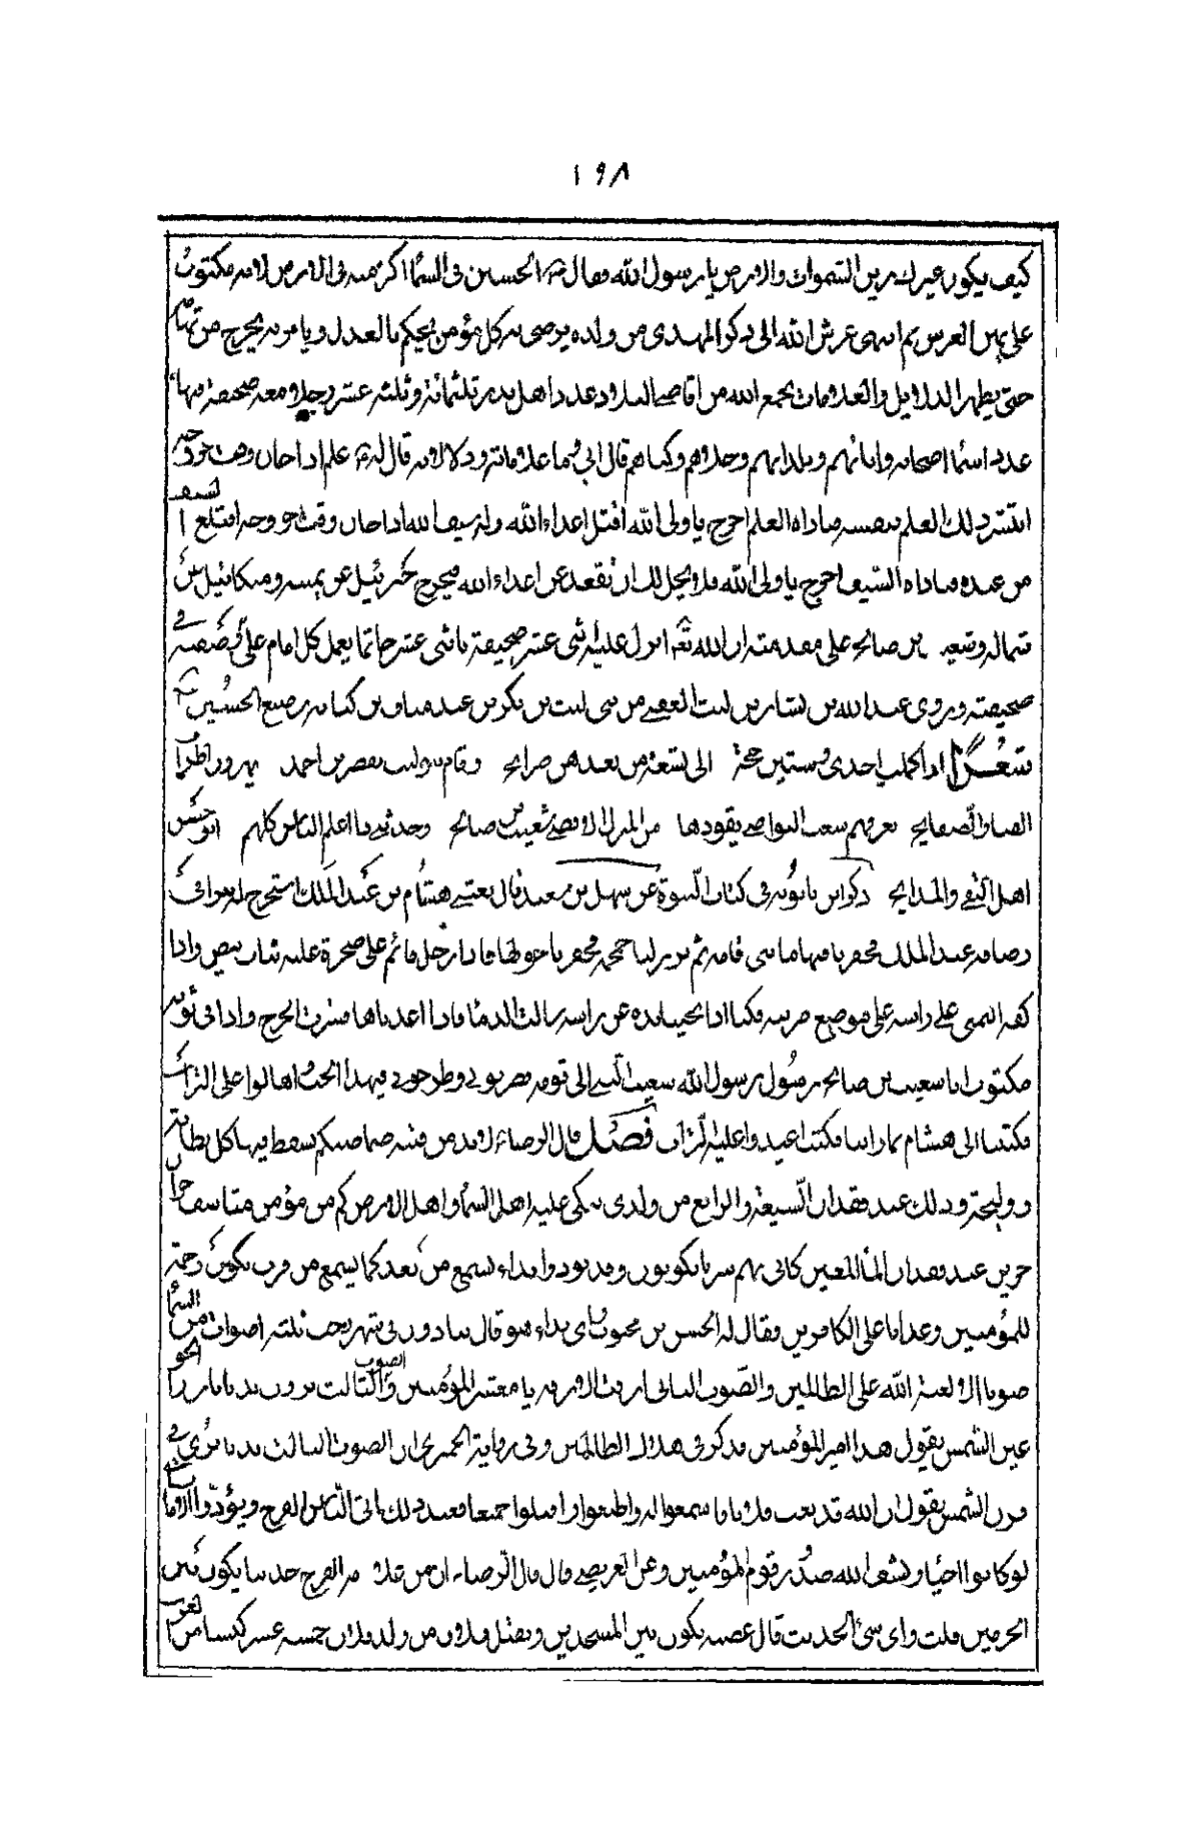 ١٩٨
كيف يكون غيرك زين السموات والارض يا رسول الله فقال الحسين فى السماء اكبر منه فى الارض لانه مكتوب
على يمين العرش ثم انتهى عرش الله الى ذكر المهدى من ولده يرضى به كل مؤمن يحكم بالعدل ويامر به يخرج من تهامة
حتى يظهر الدلايل والعلامات يجمع الله من اقاصى البلاد عدد اهل بدر ثلثمائة وثلثة عشر رجلا معه صحيفة فيها
عدد اسماء اصحابه وانسابهم وبلدانهم وحلاهم وكناهم قال ابى وما علاماته ودلالاته قال له علم اذا حان وقت خروجه
انتشر ذلك العلم بنفسه فناداه العلم اخرج يا ولى الله اقتل اعداء الله وله سيف الله اذا حان وقت خروجه اقتلع السيف
من غمده فناداه السيف اخرج يا ولى الله فلا يحل لك ان تقعد عن اعداء الله فيخرج جبرئيل عن يمينه وميكائيل عن
شماله وشعيب بن صالح على مقدمته ان الله تعالى انزل على اثنى عشر صحيفة باثنى عشر خاتما يعمل كل امام على فى صفته
صحيفته وروى عبد الله بن بشار بن ليث من بنى ليث بن بكر بن عبد مناف بن كنانة رضيع الحسين
شعر اذا كملت احدى وستين حجة الى تسعة من بعدهن صرايح وقام بنو ليث بنصر بن احمد يهزون اطراف
القنا والصفايح تعرفهم شعث النواصى يقودها من المنزل الاقصى شعيب بن صالح وحدثنى ذا اعلم الناس كلهم ابو حسن
اهل التقى والمدايح ذكر ابن بابويه فى كتاب النبوة عن سهل بن سعيد قال بعثنى هشام بن عبد الملك استخرج له بئرا فى
رصافة عبد الملك فحفرنا منها مائتى قامة ثم بدت لنا جمجمة فحفرنا حولها فاذا رجل قائم على صخرة عليه ثياب بيض واذا
كفه اليمنى على راسه على موضع ضربة فكنا اذا نحينا يده عن راسه سالت الدماء فاذا اعدناها سدت الجرح واذا فى ثوبه
مكتوب انا شعيب بن صالح رسول رسول الله شعيب النبى الى قومه فضربونى وطرحونى فى هذا الجب واهالوا على التراب
فكتبنا الى هشام بما راينا فكتب اعيدوا عليه التراب فصل قال الرضا لابد من فتنة صماء صيلم يسقط فيها كل بطانة
ووليجة وذلك عند فقدان الشيعة الرابع من ولدى يبكى عليه اهل السماء واهل الارض كم من مؤمن متاسف حران
حزين عند فقدان الماء المعين كانى بهم شر ما يكونون وقد نودوا نداء يسمع من بعد كما يسمع من قرب يكون رحمة
للمؤمنين وعذابا على الكافرين فقال له الحسن بن محبوب اى نداء هو قال ينادون فى شهر رجب ثلثة اصوات من السماء
صوتا الا لعنة الله على الظالمين والصوت الثانى ازفت الازفة يا معشر المؤمنين والصوت الثالث يرون بدنا بارزا نحو
عين الشمس يقول هذا امير المؤمنين قد كر فى هلاك الظالمين وفى رواية الحميرى ان الصوت الثالث بدنا يرى فى
قرن الشمس يقول ان الله قد بعث فلانا فاسمعوا له واطيعوا واقبلوا جميعا فعند ذلك ياتى الناس الفرج ويود الاموات
لو كانوا احياء ويشف الله صدور قوم المؤمنين وعن قال قال الرضا ان من علامة الفرج حدثا يكون بين
الحرمين قلت واى شىء الحدث قال عصبة يكون بين المسجدين ويقتل فلان من ولد فلان خمسة عشر كبشا من العرب